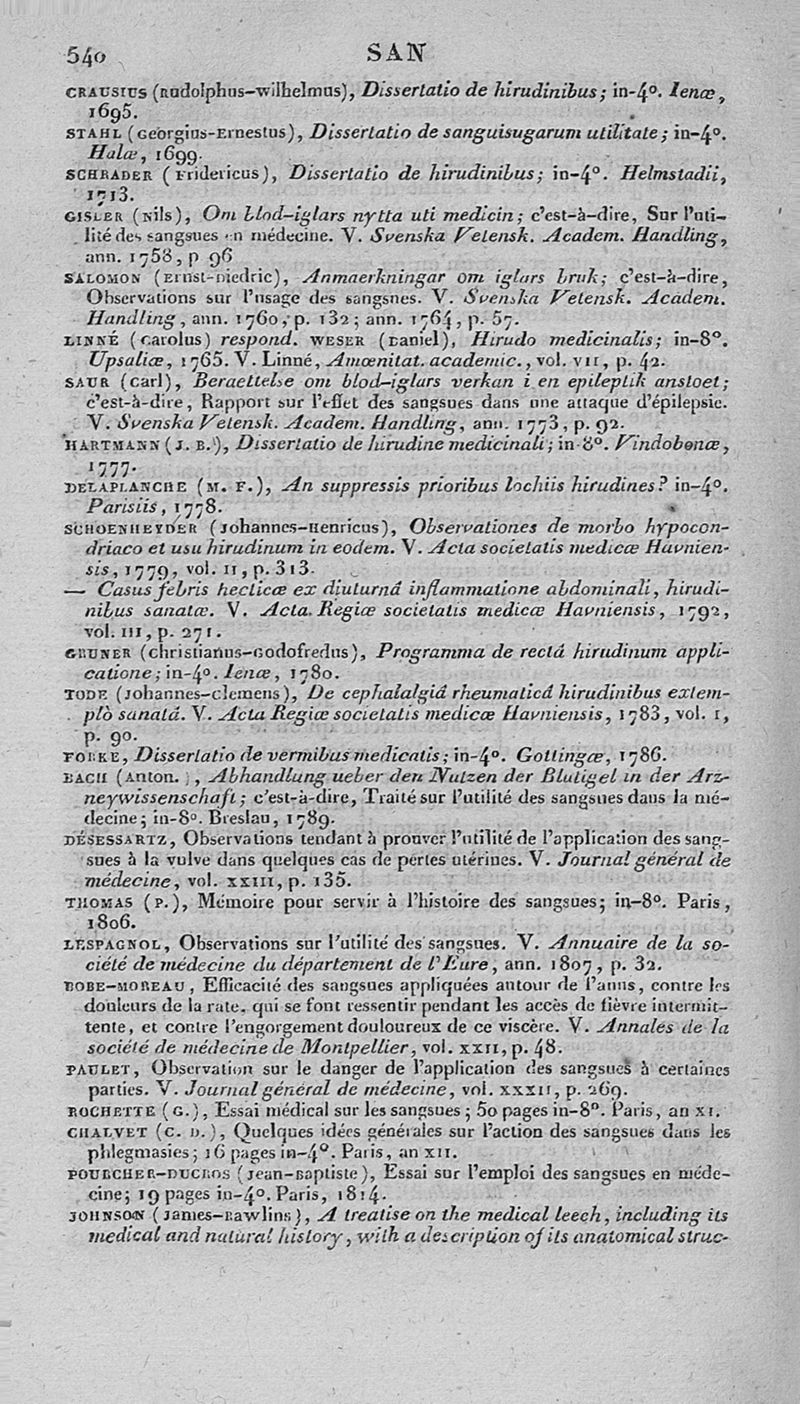 540 SAN
CRAUSIUS (Rudolphus-wilhelmus), Dissertatio de hirudinibus; in-4°. Ienæ,
1695.
STAHL (Georgius-Ernestus), Dissertatio de sanguisugarum utilitate; in-4°.
Halæ, 1699.
SCHRADER (Fridericus), Dissertatio de hirudinibus; in-4°. Helmstadii,
1713.
GISLER (Nils), Om blod-iglars nytta uti medicin; c'est-à-dire, Sur l'uti-
lité des sangsues en médecine. V. Svenska Vetensk. Academ. Handling,
ann. 1758, p 96
SALOMON (Ernst-Diedric), Anmaerkningar om iglars bruk; c'est-à-dire,
Observations sur l'usage des sangsues. V. Svenska Vetensk. Academ.
Handling, ann. 1760, p. 132; ann. 1764, p. 57.
LINNÉ (Carolus) respond. WESER (Daniel), Hirudo medicinalis; in-8°.
Upsaliæ, 1765. V. Linné, Amœnitat. academic., vol. VII, p. 42.
SAUR (Carl), Beraettelse om blod-iglars verkan i en epileptik anstoet;
c'est-à-dire, Rapport sur l'effet des sangsues dans une attaque d'épilepsie.
V. Svenska Vetensk. Academ. Handling, ann. 1773, p. 92.
HARTMANN (J. B.), Dissertatio de hirudine medicinali; in-8°. Vindobonæ,
1777.
DELAPLANCHE (M. F.), An suppressis prioribus lochiis hirudines? in-4°.
Parisiis, 1778.
SCHOENHEYDER (Johannes-Henricus), Observationes de morbo hypocon-
driaco et usu hirudinum in eodem. V. Acta societatis medicæ Havnien-
sis, 1779, vol. II, p. 313.
— Casus febris hecticæ ex diuturnâ inflammatione abdominali, hirudi-
nibus sanatæ. V. Acta. Regiæ societatis medicæ Havniensis, 1792,
vol. III, p. 271.
GRUNER (Christianus-Godofredus), Programma de rectâ hirudinum appli-
catione; in-4°. Ienæ, 1780.
TODE (Johannes-clemens), De cephalalgiâ rheumaticâ hirudinibus extem-
plò sanatâ. V. Acta Regiæ societatis medicæ Havniensis, 1783, vol. I,
p. 90.
FOLKE, Dissertatio de vermibus medicatis; in-4°. Gottingæ, 1786.
BACH (Anton.), Abhandlung ueber den Nutzen der Blutigel in der Arz-
neywissenschaft; c'est-à-dire, Traité sur l'utilité des sangsues dans la mé-
decine; in-8°. Breslau, 1789.
DÉSESSARTZ, Observations tendant à prouver l'utilité de l'application des sang-
sues à la vulve dans quelques cas de pertes utérines. V. Journal général de
médecine, vol. XXIII, p. 135.
THOMAS (P.), Mémoire pour servir à l'histoire des sangsues; in-8°. Paris,
1806.
LESPAGNOL, Observations sur l'utilité des sangsues. V. Annuaire de la so-
ciété de médecine du département de l'Eure, ann. 1807, p. 32.
BOBE-MOREAU, Efficacité des sangsues appliquées autour de l'anus, contre les
douleurs de la rate, qui se font ressentir pendant les accès de fièvre intermit-
tente, et contre l'engorgement douloureux de ce viscère. V. Annales de la
société de médecine de Montpellier, vol. XXII, p. 48.
PAULET, Observation sur le danger de l'application des sangsues à certaines
parties. V. Journal général de médecine, vol. XXXII, p. 269.
ROCHETTE (G.), Essai médical sur les sangsues; 50 pages in-8°. Paris, an XI.
CHALVET (C. D.), Quelques idées générales sur l'action des sangsues dans les
phlegmasies; 16 pages in-4°. Paris, an XII.
POURCHER-DUCROS (Jean-Baptiste), Essai sur l'emploi des sangsues en méde-
cine; 19 pages in-4°. Paris, 1814.
JOHNSON (James-Rawlins), A treatise on the medical leech, including its
medical and natural history, with a description of its anatomical struc-